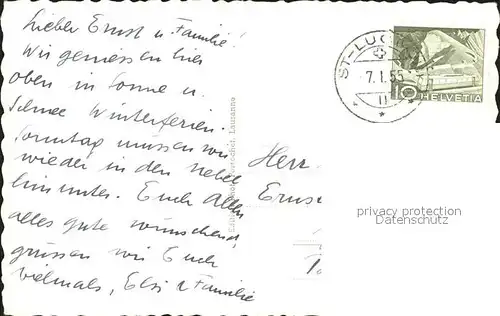 Lieber Ernst u. Familie!
Wir geniessen hier
oben in Sonne u.
Schnee Winterferien.
Sonntag müssen wir
wieder in den Nebel
hinunter. Euch allen
alles gute wünschend,
grüssen wir Euch
vielmals, Elsi & Familie
Herr
Ernst
ST-LUC
7.1.55
11
10
HELVETIA
Lausanne
privacy protection
Datenschutz